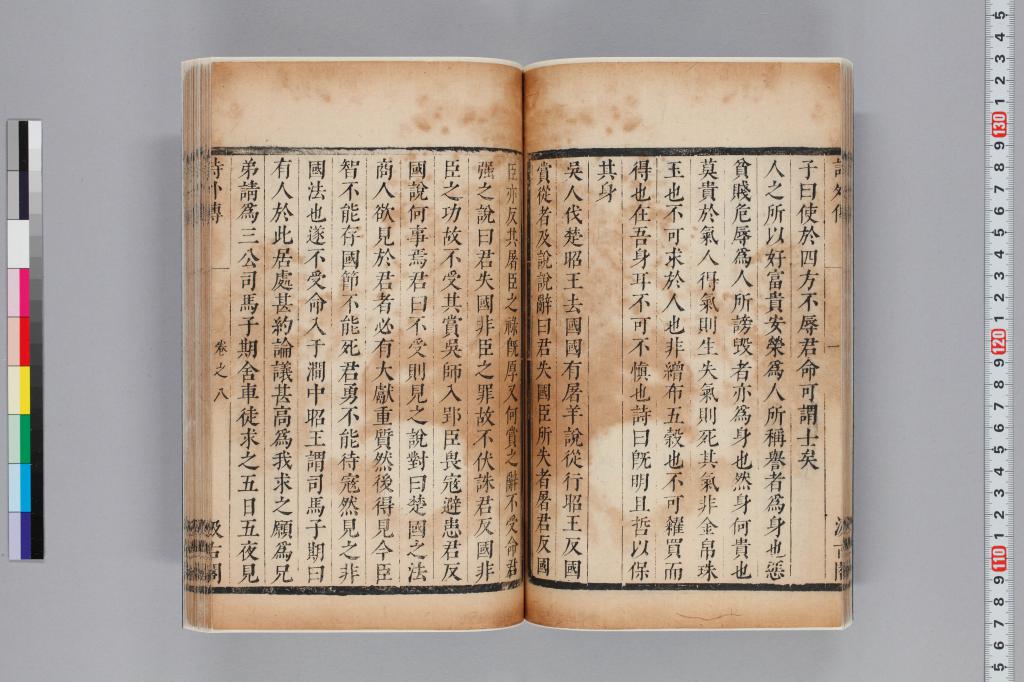 子曰使於四方不辱君命可謂士矣
人之所以好富貴安榮爲人所稱譽者爲身也惡
貧賤危辱爲人所謗毀者亦爲身也然身何貴也
莫貴於氣人得氣則生失氣則死其氣非金帛珠
玉也不可求於人也非繒布五穀也不可糴買而
得也在吾身耳不可不愼也詩曰旣明且哲以保
其身
吳人伐楚昭王去國國有屠羊說從行昭王反國
賞從者及說說辭曰君失國臣所失者屠君反國
臣亦反其屠臣之祿旣厚又何賞之辭不受命君
强之說曰君失國非臣之罪故不伏誅君反國非
臣之功故不受其賞吳師入郢臣畏寇避患君反
國說何事焉君曰不受則見之說對曰楚國之法
商人欲見於君者必有大獻重質然後得見今臣
智不能存國節不能死君勇不能待寇然見之非
國法也遂不受命入于澗中昭王謂司馬子期曰
有人於此居處甚約論議甚高爲我求之願爲兄
弟請爲三公司馬子期舍車徒求之五日五夜見
詩外傳
卷之八
汲古閣